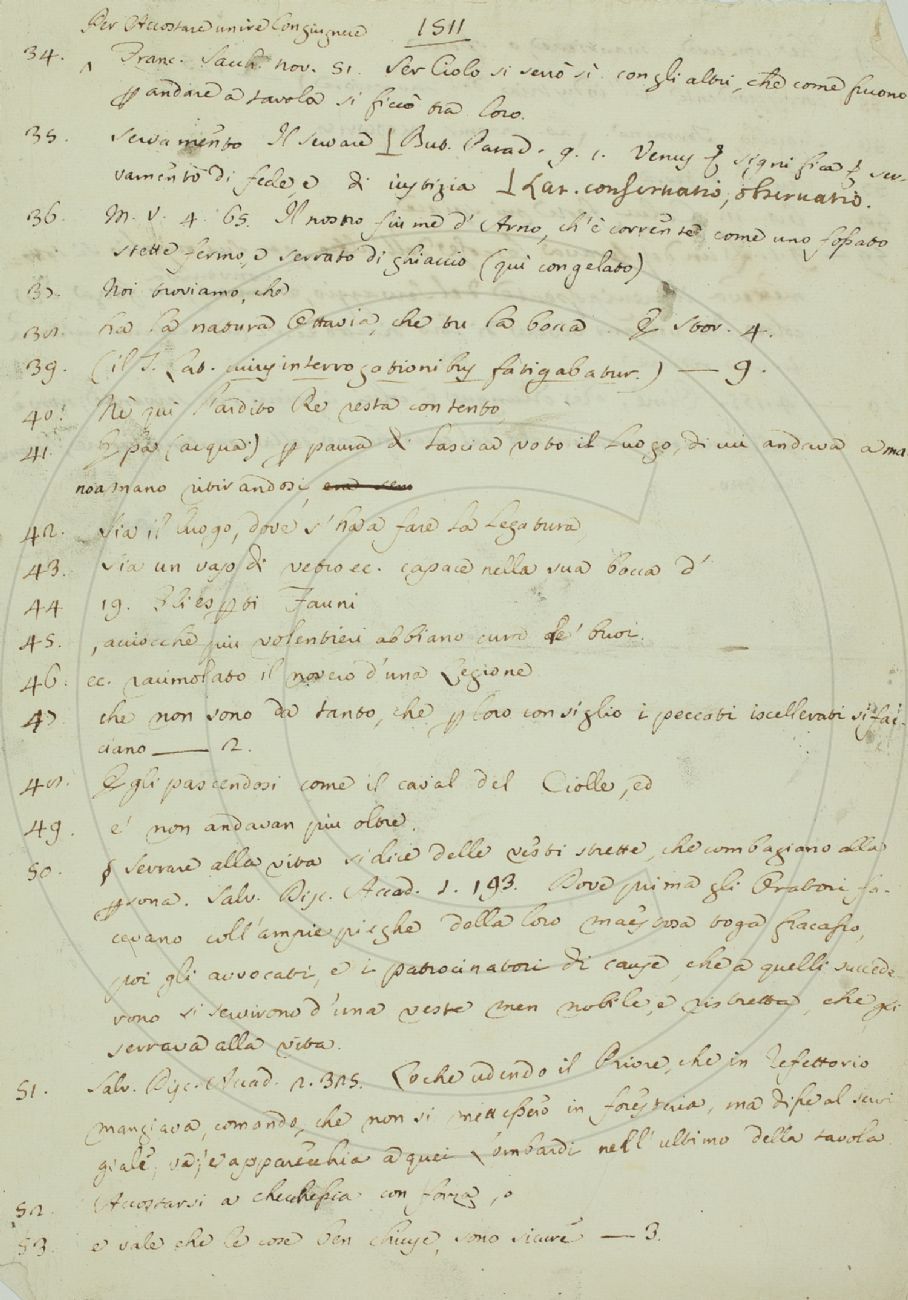 Per Accostare unire Congiugnere 1511
34. Franc. Sacch. nov. 51. Ser Ciolo si serrò sì con gli altri, che come furono
andare a tavola si ficcò tra loro.
35. Servamento Il servare But. Parad. 9. 1. Venus significa ser-
vamento di fede e di iustizia Lat. conservatio, observatio.
36. M. V. 4. 65. Il nostro fiume d'Arno, ch'è corrente come uno fossato
stette fermo, e serrato di ghiaccio (quì congelato)
37. Noi troviamo, che
38. ha la natura Ottavia, che tu la bocca Stor. 4.
39. (il T. Lat. interrogationibus fatigabatur.) — 9.
40. Nè qui l'ardito Re resta contento
41. (acqua) paura di lasciar voto il luogo, di cui andava a ma
no a mano ritirandosi,
42. Sia il luogo, dove s'ha a fare la legatura,
43. Sia un vaso di vetro ec. capace nella sua bocca d'
44 19. Gli Fauni
45. , acciocchè più volentieri abbiano cura de' buoi.
46. ec. raumolato il novero d'una Legione
47 che non sono da tanto, che loro consiglio i peccati iscellerati si fac-
ciano — 2.
48. Egli pascendosi come il caval del Ciolle, ed
49. e' non andavan più oltre.
50. § Serrare alla vita si dice delle vesti strette, che combagiano alla
persona. Salv. Disc. Accad. 1. 193. Dove prima gli Oratori fa-
cevano coll'ampie pieghe della loro maestosa toga fracasso,
poi gli avvocati, e i patrocinatori di cause, che a quelli succede-
rono si servirono d'una veste men nobile, e ristretta, che gli
serrava alla vita.
51. Salv. Disc. Accad. 2. 325. Loche udendo il Priore, che in Refettorio
mangiava, comandò, che non si mettessero in foresteria, ma disse al servi
giale; va, e apparecchia a quei Lombardi nell'ultimo della tavola.
52. Accostarsi a checchesia con forza, o
53. e vale che le cose ben chiuse, sono sicure — 3.